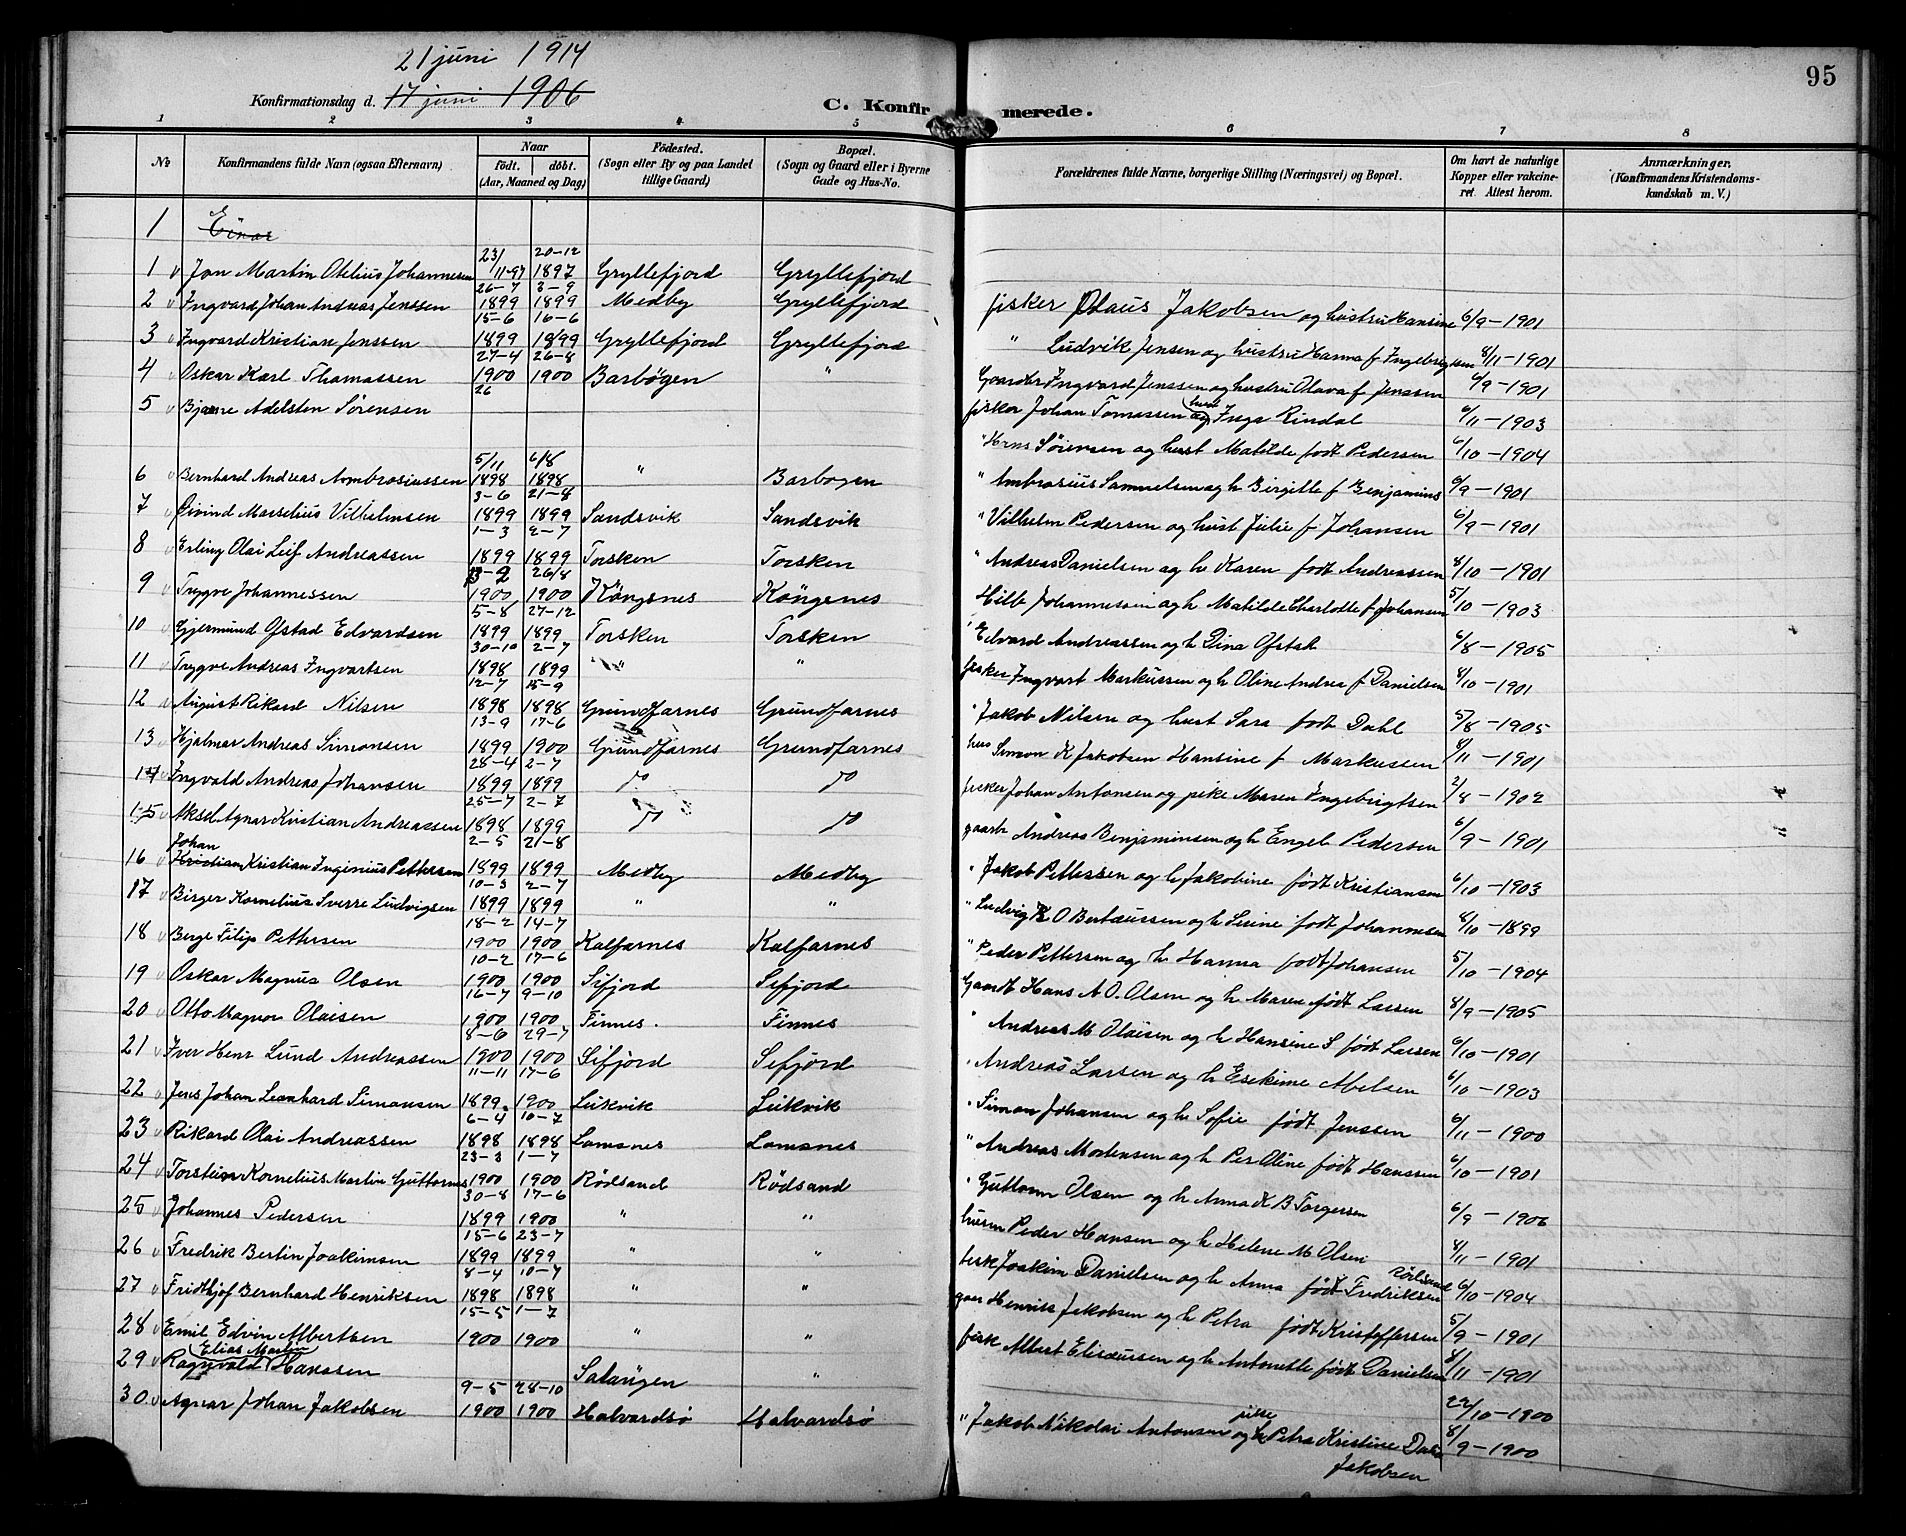 21 juni 1914
Konfirmationsdag d. 17 juni 1906
C. Konfirmerede.
95
1 2 3 4 5 6 7 8
№ Konfirmandens fulde Navn (ogsaa Efternavn) Naar født. døbt. (Aar, Maaned og Dag) Fødested. (Sogn eller By og paa Landet tillige Gaard) Bopæl. (Sogn og Gaard eller i Byerne Gade og Hus-No. Forældrenes fulde Navne, borgerlige Stilling (Næringsvei) og Bopæl. Om havt de naturlige Kopper eller vakcineret. Attest herom. Anmærkninger. (Konfirmandens Kristendomskundskab m. V.)
1 Einar
1 Jon Martin Otelius Johannesen 23/11-97 20-12 1897 Gryllefjord Gryllefjord fisker Olaus Jakobsen og hustru Hansine 6/9-1901
2 Ingvard Johan Andreas Jenssen 26-7 1899 3-9 1899 Medby Gryllefjord " Ludvik Jensen og hustru Hanna f Ingebrigtsen 8/11-1901
3 Ingvard Kristian Jenssen 15-6 1899 16-6 1899 Gryllefjord Gryllefjord Gaardbr Ingvard Jenssen og hustru Olava f Jenssen 6/9-1901
4 Oskar Karl Thomassen 27-4 1900 26-8 1900 Barbögen " fisker Johan Tomassen og Inga Rindal 6/11-1903
5 Bjarne Adelsten Sörensen 26 " Hans Sörensen og hust Matilde født Pedersen 6/10-1904
6 Bernhard Andreas Ambrosiassen 5/11 1898 6/8 1898 " Barbogen " Ambrosius Sammelsen og h Birgitte f Benjamins 6/9-1901
7 Eivind Marselius Vilhelmsen 3-6 1899 21-8 1899 Sandsvik Sandsvik " Vilhelm Pedersen og hust Julie f Johansen 6/9-1901
8 Erling Olai Leif Andreassen 1-3 1899 2-7 1899 Torsken Torsken " Andreas Danielsen og h Karen født Andreassen 8/10-1901
9 Trygve Johannessen 3-2 1900 26/8 1900 Köngsnes Köngsnes Hilb Johannessen og h Matilde Charlotte f Johansen 5/10-1903
10 Gjermund Ofstad Edvardsen 5-8 1899 27-12 1899 Torsken Torsken " Edvard Andreassen og h Dina Ofstad 6/8-1905
11 Trygve Andreas Ingvartsen 30-10 1898 2-7 1899 " " fisker Ingvart Markussen og h Oline Andrea f Danielsen 8/10-1901
12 August Rikard Nilsen 12-7 1898 15-9 1898 Grundfarnes Grundfarnes " Jakob Nilsen og hust Sara født Dahl 5/8-1905
13 Hjalmar Andreas Simonsen 13-9 1899 17-6 1900 Grundfarnes Grundfarnes Simon K Jakobsen Hansine f Markussen 8/11-1901
14 Ingvald Andreas Johansen 28-4 1899 2-7 1899 do do fisker Johan Antonsen og pike Maren Ingebrigtsen 2/8-1902
15 Aksel Agnar Kristian Andreassen 25-7 1898 2-7 1899 do do gaarbr Andreas Benjaminsen og h Engel Pedersen 6/9-1901
16 Johan Kristian Kristian Ingenius Pettersen 2-5 1899 21-8 1899 Medby Medby " Jakob Pettersen og h Jakobine født Kristiansen 6/10-1903
17 Birger Kornelius Sverre Ludvigsen 10-3 1899 2-7 1899 " " " Ludvig K O Berteussen og h Serine født Johannesen 8/10-1899
18 Berge Filip Pettersen 18-2 1900 14-7 1900 Kalfarnes Kalfarnes " Peder Pettersen og h Hanna født Johansen 5/10-1904
19 Oskar Magnus Olsen 10-2 1900 17-6 1900 Sifjord Sefjord Gaardb Hans A O. Olsen og h Maren født Larsen 8/9-1905
20 Otto Magnor Olaisen 16-7 1900 9-10 1900 Finnes. Finnes " Andreas M Olaisen og h Hansine S født Larsen 6/10-1901
21 Iver Henr Lund Andreassen 8-6 1900 29-7 1900 Sifjord Sefjord " Andreas Larsen og h Esekine Abelsen 6/10-1903
22 Jens Johan Leonhard Simonsen 11-11 1899 17-6 1900 Leikvik Leikvik " Simon Johansen og h Sofie født Jenssen 6/11-1900
23 Rikard Olai Andreassen 6-4 1898 10-7 1898 Lamsnes Lamsnes " Andreas Mortensen og h Per Oline født Hanssen 6/10-1901
24 Torstein Kornelius Martin Guttormsen 23-3 1900 1-7 1900 Rödsand Rödsand " Guttorm Olsen og h Anna K B Torgersen 6/9-1906
25 Johannes Pedersen 30-8 1899 17-6 1900 " " husm Peder Hansen og h Helene M Olsen 8/11-1901
26 Fredrik Bertin Joakimsen 15-6 1899 23-7 1899 " " fisk Joakim Danielsen og h Anna født Fredriksen Rödsand 6/10-1904
27 Fridthjof Bernhard Henriksen 8-4 1898 10-7 1898 " " gaar Henrik Jakobsen og h Petra født Kristoffersen 5/9-1901
28 Emil Edvin Albertsen 15-5 1900 1-7 1900 " " fisk Albert Eliseussen og h Antonette født Danielsen 8/11-1901
29 Ragnvald Elias Martin Hanssen Salangen " 22/10-1900
30 Agnar Johan Jakobsen 9-5 1900 28-10 1900 Halvardsö Halvardsö " Jakob Nikolai Antonsen og pike Petra Kristine Jakobsen 8/9-1900